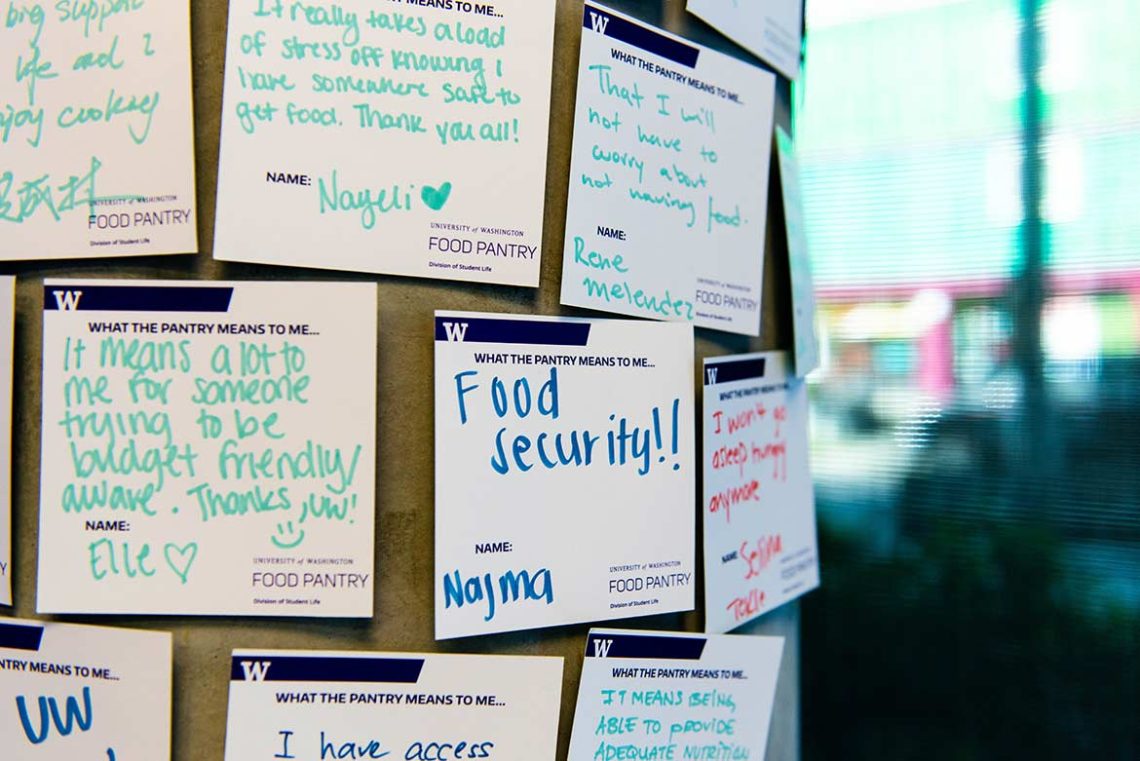 big support
life and I
enjoy cooking
UNIVERSITY of WASHINGTON
FOOD PANTRY
Division of Student Life
WHAT THE PANTRY MEANS TO ME...
It really takes a load
of stress off knowing I
have somewhere safe to
get food. Thank you all!
NAME:
Nayeli
UNIVERSITY of WASHINGTON
FOOD PANTRY
Division of Student Life
W
WHAT THE PANTRY MEANS TO ME...
That I will
not have to
worry about
not having food.
NAME:
Rene
melendez
UNIVERSITY of WASHINGTON
FOOD PANTRY
Division of Student Life
W
WHAT THE PANTRY MEANS TO ME...
It means a lot to
me for someone
trying to be
budget friendly/
aware. Thanks, UW!
NAME:
Elle
UNIVERSITY of WASHINGTON
FOOD PANTRY
Division of Student Life
W
WHAT THE PANTRY MEANS TO ME...
Food
security!!
NAME:
Najma
UNIVERSITY of WASHINGTON
FOOD PANTRY
Division of Student Life
W
WHAT THE PANTRY MEANS TO ME...
I won't go
asleep hungry
anymore
NAME:
Selina
Tekle
FOOD PANTRY
NTRY MEANS TO ME...
UW
W
WHAT THE PANTRY MEANS TO ME...
I have access
W
WHAT THE PANTRY MEANS TO ME...
IT MEANS BEING
ABLE TO PROVIDE
ADEQUATE NUTRITION